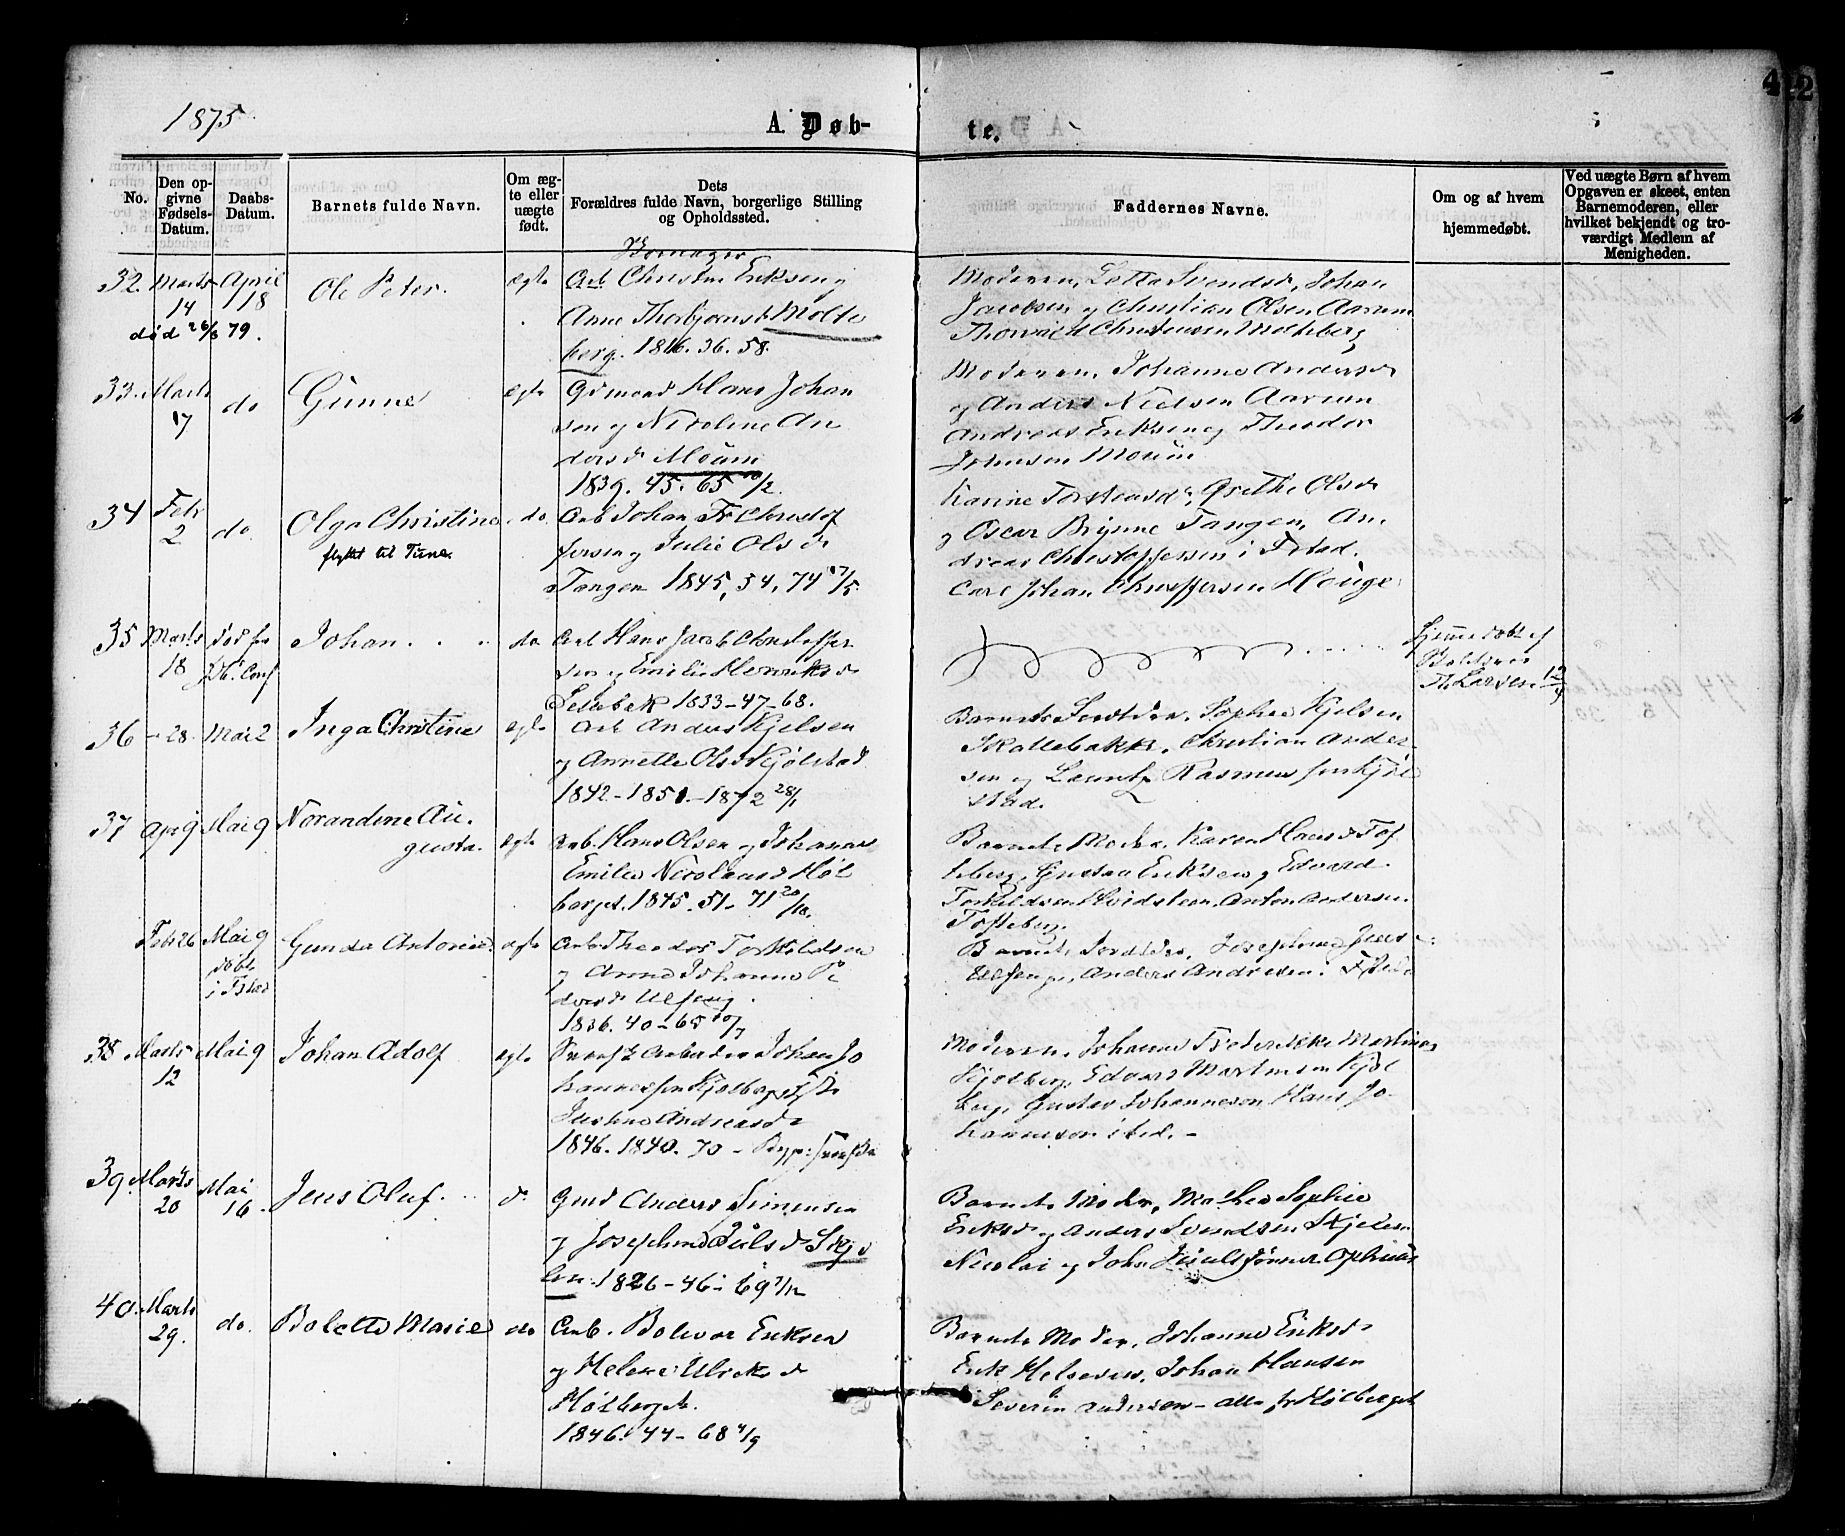 1875
A. Døb-
te.
42
No.
Den op-
givne
Fødsels-
Datum.
Daabs-
Datum.
Barnets fulde Navn.
Om æg-
te eller
uægte
født.
Dets
Forældres fulde Navn, borgerlige Stilling
og Opholdssted.
Faddernes Navne.
Om og af hvem
hjemmedøbt.
Ved uægte Børn af hvem
Opgaven er skeet, enten
Barnemoderen, eller
hvilket bekjendt og tro-
værdigt Medlem af
Menigheden.
32. Marts
14
April
18
død 26/6 79.
Ole Peter.
ægte
Arb Christen Eriksen og
Anne Thorbjørnsd Molte
berg. 1816. 36. 58.
Moderen, Lotte Svendsd, Johan
Jacobsen og Christian Olsen Aarum
Thorvald Christensen Molteberg
33. Marts
17
do
Gunne
ægte
Gdmand Hans Johan
sen og Nicoline An
dersd Moum
1839. 45. 65
Moderen, Johanne Andersd
og Anders Nielsen Aarum
Andreas Eriksen og Theodor
Johnsen Moum
34 Febr
2
do.
Olga Christine
flyttet til Tune.
do.
Arb Johan Fr Christof
fersen og Julie Olsd
Tangen 1845, 54, 74 17/5.
Karine Torstensd, Grethe Olsd
og Oscar Brynne Tangen, An
dreas Christoffersen i Fstad.
Carl Johan Christoffersen Houge
35 Marts
18
Johan
do
Arb Hans Jacob Christoffer
sen og Emilie Henriksd
Lelubek 1833-47-68.
Hjemmedøbt af
Th. Larsen 12/4
36 - 28.
Mai 2
Inga Christine
ægte
Arb Anders Kjelsen
og Annette Olsd Kjølstad
1842-1851-1872 28/1
Barnets Forældre, Sophie Kjelsen
Skallebakke, Christian Ander-
sen og Lauritz Rasmussen Kjøl
stad.
37
Apr 9
Mai 9
Norandine Au-
gusta.
ægte
Arb. Hans Olsen og Johanne
Emilie Nicolaisd Høl
berget. 1845. 51. 71 20/10.
Barnets Moder, Karen Hansd Tof
teberg, Gustav Eriksen og Edvard
Torkildsen Hvidsteen, Anton Andersen
Tofteberg.
Febr 26
Mai 9
døbt
i Fstad
Gunda Antonie
ægte
Arb Theodor Torkildsen
og Anne Johanne Pe
dersd Ulfeng.
1836. 40-65 10/7
Barnets Forældre, Josephine Jensd
Ulfeng, Anders Andresen i Fstad
38 Marts
12
Mai 9
Johan Adolf
ægte
Svensk Arbeider Johan Jo
hannessen Kjølberg
Justine Andreasd
1846. 1840. 70
Moderen, Johanne Frederikke Martines
Kjølberg, Edvard Martinsen Kjøl
berg, Gustav Johannesen Hans Jo-
hannesen ibid. -
39. Marts
20
Mai
16.
Jens Oluf.
do
Gmd Anders Simensen
og Josephine Juelsd Skje
len: 1826-46-69 7/12
Barnets Moder, Mathea Sophie
Eriksd og Anders Svendsen Skjelen
Nicolai og John Juelssønner Ophuus
40. Marts
29.
do.
Bolette Marie
do
Arb. Bolevar Eriksen
og Helene Ulriksd
Hølberget.
1846. 44-68 4/9
Barnets Moder, Johanne Eriksd
Erik Helgesen, Johan Hansen
Severin Andersen - alle fr Hølberget